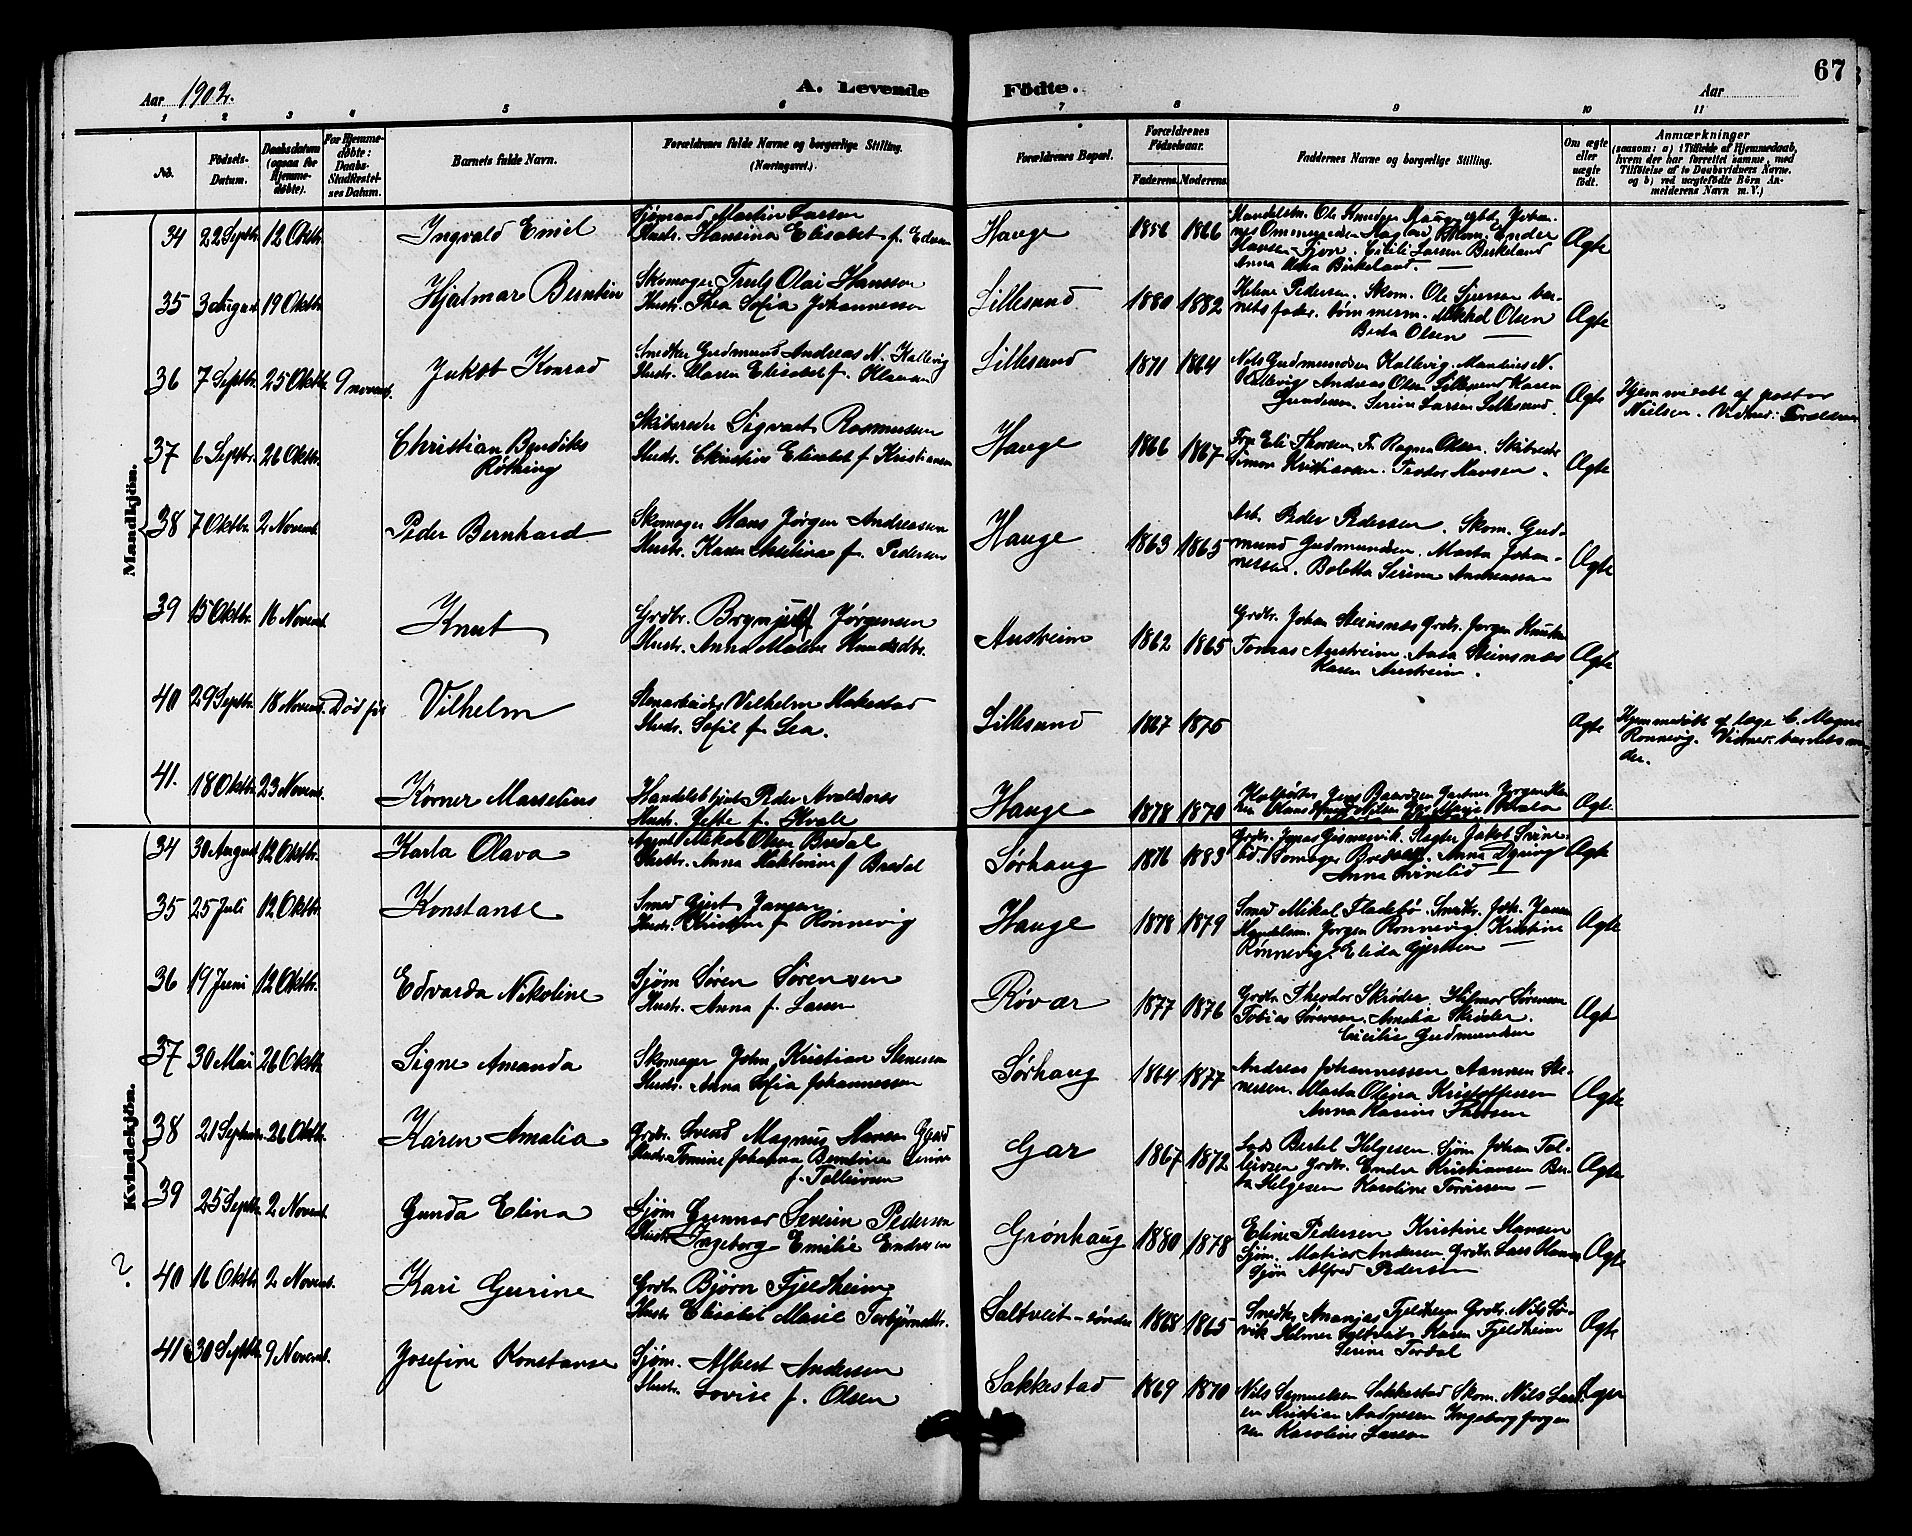 67
Aar 1902.
A. Levende Födte.
Aar
1 2 3 4 5 6 7 8 9 10 11
No.
Födsels-
Datum.
Daabsdatum
(ogsaa for
Hjemme-
døbte).
For Hjemme-
døbte:
Daabs-
Stadfæstel-
ses Datum.
Barnets fulde Navn.
Forældrenes fulde Navne og borgerlige Stilling.
(Næringsvei.)
Forældrenes Bopæl.
Forældrenes
Födselsaar.
Faderens. Moderens.
Faddernes Navne og borgerlige Stilling.
Om ægte
eller
uægte
født.
Anmærkninger
(saasom: a) i Tilfælde af Hjemmedaab,
hvem der har forrettet samme, med
Tilföielse af to Daabsvidners Navne,
og b) ved uægtefödte Börn An-
melderens Navn m. V.)
Mandkjön.
34 22 Septbr. 12 Oktbr. Ingvald Emil
Sjömand Martin Larsen
Hustr. Hansina Elisabet f.
Hauge 1856 1866
Anna Birkeland.
Ægte
35 3 August 19 Oktbr. Hjalmar Berntin
Skomager Truls Olai Hansson
Hustr. Thea Sofia Johannessen
Lillesund 1880 1882
Helene Pedersen. Skom. Ole
nets fader. Olsen
Berta Olsen
Ægte
36 7 Septbr. 25 Oktbr. 9 novemb. Jakob Konrad
Snedker Gudmund Andreas N. Kallevig
Hustr. Maren Elisabet f. Klausen
Lillesund 1871 1864
Nels Gudmundsen Kallevig. Martius N.
Kallevig Andreas Olsen Lillesund Karen
Gundersen. Serine Larsen Lillesund.
Ægte
Hjemmedøbt af pastor
Nielsen. Vidner: Forældrene
37 6 Septbr. 26 Oktbr. Christian Bendiks
Röthing
Skibsreder Sigvart Rasmussen
Hustr. Christine Elisabet f. Kristiansen
Hauge 1866 1867
Fru Eli Thorsen. Fr. Ragna Olsen. Skibsreder
Simon Kristiansen. Teodor Hansen.
Ægte
38 7 Oktbr. 2 Novemb. Peder Bernhard
Skomager Hans Jørgen Andreassen
Hustr. Karen Aselina f. Pedersen
Hauge 1863 1865
Arb. Peder Pedersen. Skom. Gud-
mund Gudmundsen. Marta Johan-
nessen. Boletta Serina Andreassen
Ægte
39 15 Oktbr. 16 Novemb. Knut
Grdbr. Brynjulf Jørgensen
Hustr. Anna Malene Knudsdtr.
Austreim 1862 1865
Grdbr. Johan Steinsnæs Grdbr. Jørgen Knutsen
Tomas Austreim. Aasa Steinsnæs
Karen Austreim.
Ægte
40 29 Septbr. 18 Novemb. Død før Vilhelm
Stenarbeider Vilhelm Hakestad
Hustr. Sofie f. Lea.
Lillesund 1867 1875
Ægte
Hjemmedøbt af læge C. Magne
Rønnevig. Vidner: barnets mo-
der.
41. 18 Oktbr. 23 Novemb. Körner Marselius
Handelsbetjent Peder Avaldsnes
Hustr. Jette f. Kvale
Hauge 1878 1870
Ægte
Kvindekjön.
34 30 August 12 Oktbr. Karla Olava
Agent Mikal Olsen Bredal
Hustr. Anna Kaktorine f. Bredal
Sørhaug 1876 1883
Grdbr. Jonas Gismervik. Slagter Jakob Svine-
lid. Anna Dyring
Anna Svinelid
Ægte
35 25 Juli 12 Oktbr. Konstanse
Smed Gjert Jansen
Hustr. Kristine f. Rönnevig
Hauge 1878 1879
Smed Mikal Fladebö. Smeds. Joh. Jansen
Handelsm. Jørgen Rønnevig. Kristine
Rønnevig. Elida Gjertsen
Ægte
36 19 Juni 12 Oktbr. Edvarda Nikoline
Sjöm Søren Sørensen
Hustr. Anna f. Larsen
Røvær 1877 1876
Grdbr. Theodor Skrøder. Hilmar Sørensen
Tobias Sørensen. Amalia Skrøder.
Cecilie Gudmundsen
Ægte
37 30 Mai 26 Oktbr. Signe Amanda
Skomager John Kristian Stenessen
Hustr. Anna Sofia Johannessen
Sørhaug 1864 1877
Andreas Johannessen Aanen Ste-
nessen. Marta Olina Kristoffersen
Anna Karine Thorsen
Ægte
38 21 Septbr. 26 Oktbr. Karen Amalia
Grdbr. Svend Magnus Hansen Gaard
Hustr. Tomine Johanna Berntine Serine
f. Tollevsen
Gar 1867 1872
Lods Bertel Helgesen. Sjöm Johan Tol-
levsen Grdbr. Endre Kristiansen Ber-
ta Helgesen Karoline Torvissen
Ægte
39 25 Septbr. 2 Novemb. Gunda Elina
Sjöm Gunnar Severin Pedersen
Hustr. Ingeborg Emilie Endresen
Grønhaug 1880 1878
Eline Pedersen Kristine Hansen
Sjöm. Matias Andersen Grdbr. Lars Hansen
Sjöm Alfred Pedersen
Ægte
? 40 16 Oktbr. 2 Novemb. Kari Gurine
Grdbr. Bjørn Fjeldheim
Hustr. Elisabet Marie Torbjørnsdtr.
Saltveit-söndre 1868 1865
Snedkr. Ananias Fjeldheim Grdbr. Nils Sö-
vik Helmer Saltveit Karen Fjeldheim
Serine Tordal
Ægte
41 30 Septbr. 9 Novemb. Josefine Konstanse
Sjöm. Albert Andersen
Hustr. Lovise f. Olsen
Sakkestad 1869 1870
Nils Samuelsen Sakkestad Skom. Nils Lars-
en Kristian Andresen Ingeborg Jørgen
sen Karoline Larsen
Ægte